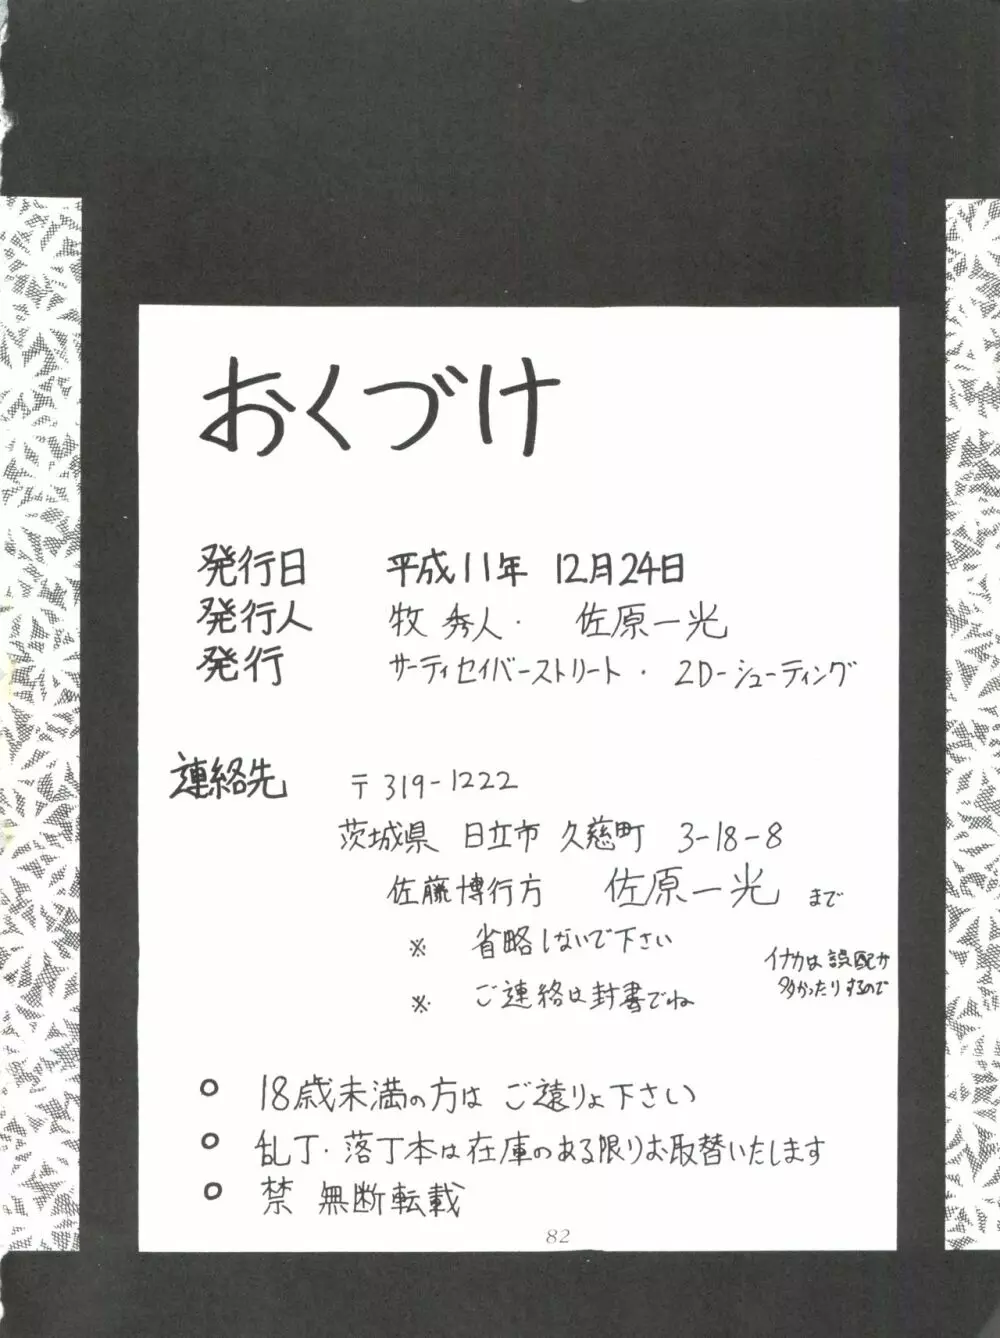 おくづけ
発行日 平成11年 12月24日
発行人 牧 秀人・ 佐原一光
発行 サーティセイバーストリート・2D-シューティング
連絡先 〒319-1222
茨城県 日立市 久慈町 3-18-8
佐藤博行方 佐原一光 まで
※ 省略しないで下さい
イナカは誤配が
多かったりするので
※ ご連絡は封書でね
○ 18歳未満の方は ご遠りょ下さい
○ 乱丁・落丁本は在庫のある限りお取替いたします
○ 禁 無断転載
82